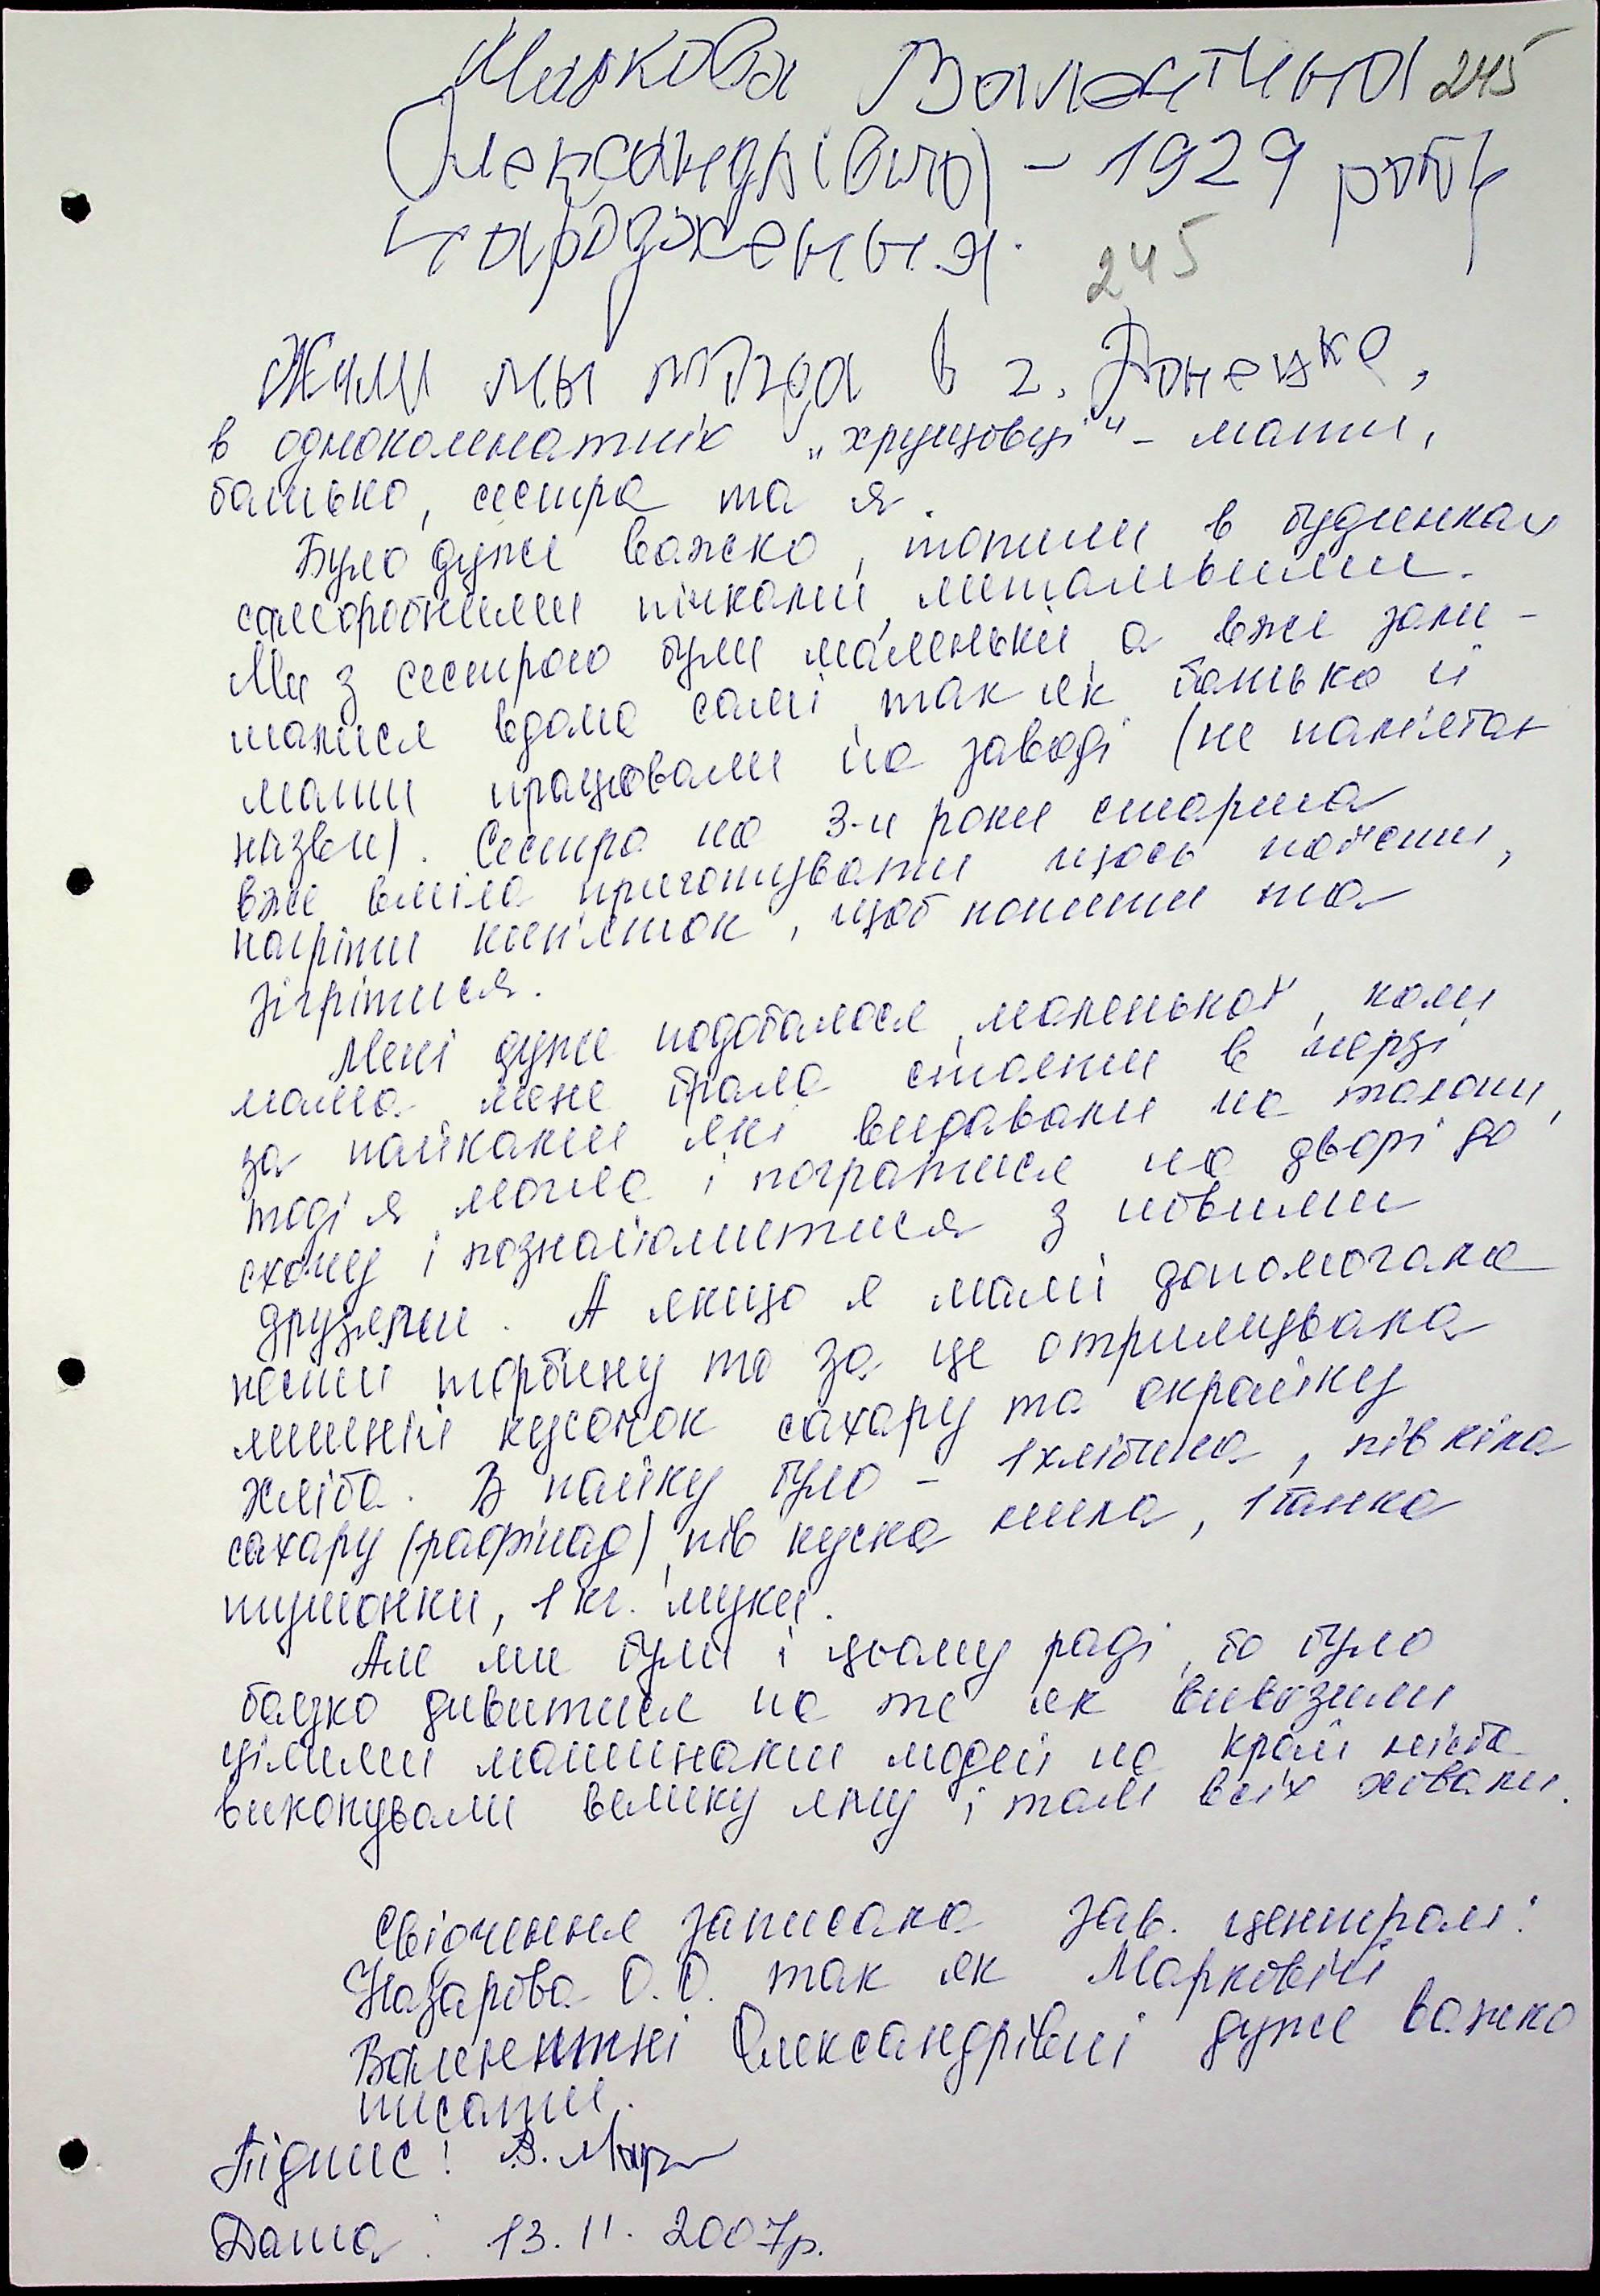 Маркова Валентина 245
Олександрівна – 1929 року
народження.
245
Жили мы тогда в г. Донецке,
в однокомнатній „хрущовці" – мати,
батько, сестра та я.
Було дуже важко, топили в будинках
саморобними пічками, митальними.
Ми з сестрою були маленьки, а вже зали-
шалися вдома самі, так як батько й
мати працювали на заводі (не пам'ятаю
назви). Сестра на 3-и роки старша
вже вміла приготувати щось поїсти,
нагріти кип'яток, щоб попити та
зігрітися.
Мені дуже подобалося, маленькой, коли
мама мене брала стояти в черзі
за пайками які видавали на талони,
тоді я могла і погратися на дворі до
схочу і познайомитися з новими
друзями. А якщо я мамі допомогала
нести торбину то за це отримувала
лишній кусочок сахару та окрайку
хліба. В пайку було – 1 хлібина, пів кіла
сахару (рафінад), пів куска мила, 1 банка
тушонки, 1 кг. муки.
Але ми були і цьому раді, бо було
боязко дивитися на те як вивозили
цілими машинами людей на край міста
викопували велику яму і там всіх ховали.
Свідчення записала зав. централі:
Назарова О.О. так як Марковій
Валентині Олександрівні дуже важко
писати.
Підпис: В. Мар
Дата: 13.11.2007р.